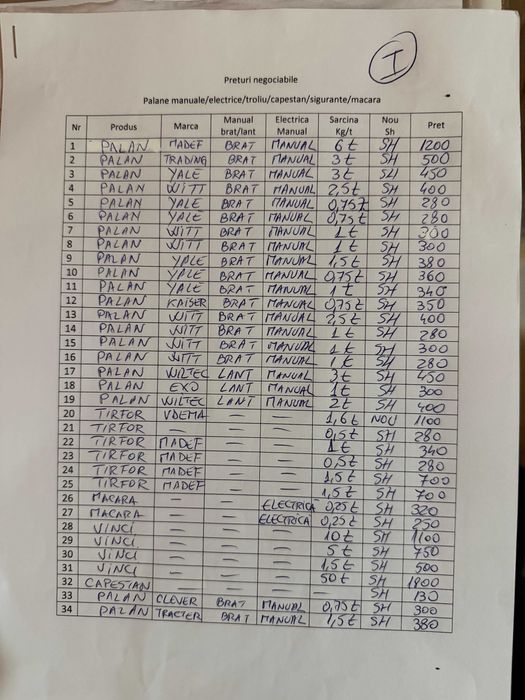 I
Preturi negociabile
Palane manuale/electrice/troliu/capestan/sigurante/macara
Nr Produs Marca Manual brat/lant Electrica Manual Sarcina Kg/t Nou Sh Pret
1 PALAN MADEF BRAT MANUAL 6t SH 1200
2 PALAN TRADING BRAT MANUAL 3t SH 500
3 PALAN YALE BRAT MANUAL 3t SH 450
4 PALAN WITT BRAT MANUAL 2,5t SH 400
5 PALAN YALE BRAT MANUAL 0,75t SH 280
6 PALAN YALE BRAT MANUAL 0,75t SH 280
7 PALAN WITT BRAT MANUAL 1t SH 300
8 PALAN WITT BRAT MANUAL 1t SH 300
9 PALAN YALE BRAT MANUAL 1,5t SH 380
10 PALAN YALE BRAT MANUAL 0,75t SH 360
11 PALAN YALE BRAT MANUAL 1t SH 340
12 PALAN KAISER BRAT MANUAL 0,75t SH 350
13 PALAN WITT BRAT MANUAL 2,5t SH 400
14 PALAN WITT BRAT MANUAL 1t SH 280
15 PALAN WITT BRAT MANUAL 1t SH 300
16 PALAN WITT BRAT MANUAL 1t SH 280
17 PALAN WILTEC LANT MANUAL 3t SH 450
18 PALAN EXO LANT MANUAL 1t SH 300
19 PALAN WILTEC LANT MANUAL 2t SH 400
20 TIRFOR VDEMA — — 1,6t NOU 1100
21 TIRFOR — — — 0,5t SH 280
22 TIRFOR MADEF — — 1t SH 340
23 TIRFOR MADEF — — 0,5t SH 280
24 TIRFOR MADEF — — 1,5t SH 700
25 TIRFOR MADEF — — 1,5t SH 700
26 MACARA — — ELECTRICA 0,25t SH 320
27 MACARA — — ELECTRICA 0,25t SH 250
28 VINCI — — — 10t SH 1100
29 VINCI — — — 5t SH 750
30 VINCI — — — 1,5t SH 500
31 VINCI — — — 50t SH 1800
32 CAPESTAN — — — — SH 130
33 PALAN CLEVER BRAT MANUAL 0,75t SH 300
34 PALAN TRACTER BRAT MANUAL 1,5t SH 380